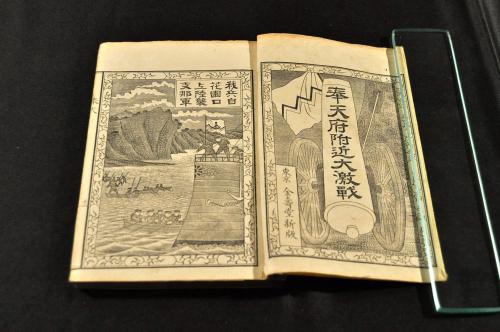 奉天府附近大激戰
東京 金壽堂新版
我兵自
花園口
上陸襲
支那軍